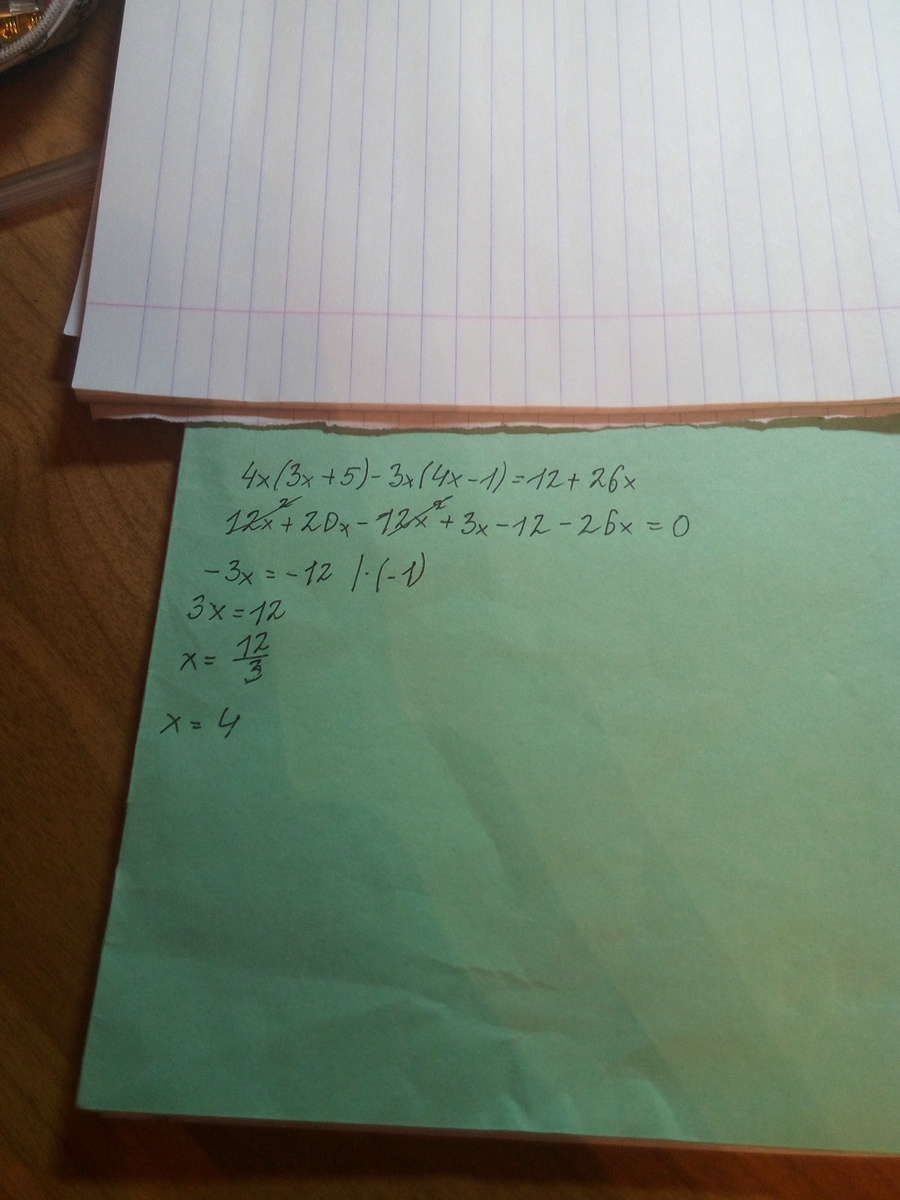 4x(3x+5)-3x(4x-1)=12+26x
12x²+20x-12x²+3x-12-26x=0
-3x=-12 |·(-1)
3x=12
x=12/3
x=4